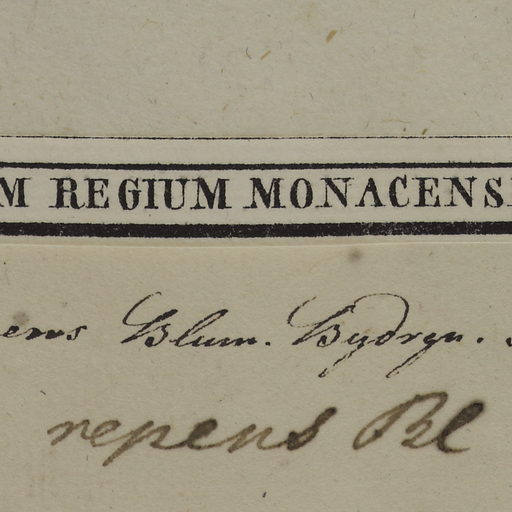 M REGIUM MONACENS
ens Blum. Bydrgn.
repens Bl